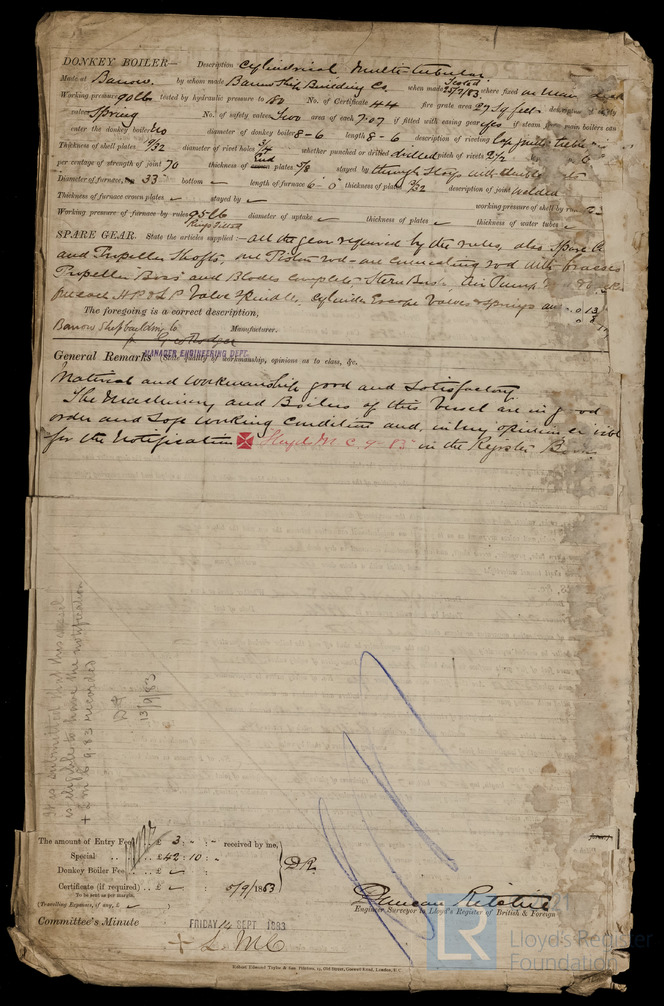 DONKEY BOILER— Description Cylindrical Multitubular
Made at Barrow. by whom made Barrow Ship Building Co. when made Tested 25/7/83 where fixed on main deck
Working pressure 90 lb tested by hydraulic pressure to 180 No. of Certificate 44 fire grate area 27 sq feet description of safety
valves Spring No. of safety valves Two area of each 7.07 if fitted with easing gear yes if steam from main boilers can
enter the donkey boiler No diameter of donkey boiler 8-6 length 8-6 description of riveting Lap
Thickness of shell plates 19/32 diameter of rivet holes 3/4 whether punched or drilled drilled pitch of rivets 2 1/2
per centage of strength of joint 70 thickness of End plates 5/8 stayed by through stays with
Diameter of furnace, top 33" bottom ✓ length of furnace 6'-0" thickness of plates 9/32 description of joint welded
Thickness of furnace crown plates ✓ stayed by ✓ working pressure of shell by rules
Working pressure of furnace by rules 95 lb diameter of uptake ✓ thickness of plates ✓ thickness of water tubes ✓
Rings fitted
SPARE GEAR. State the articles supplied:— All the gear required by the rules, also Spare
and Propeller Shafts, one Piston rod - one Connecting rod with brasses
Propeller Boss and Blades complete - Stern Bush, Air Pump
for each H.P. & L.P. Valve Spindle, Cylinder Escape Valves & springs
The foregoing is a correct description,
Barrow Shipbuilding Co Manufacturer.
MANAGER ENGINEERING DEPT.
General Remarks (State quality of workmanship, opinions as to class, &c.
Material and workmanship good and satisfactory.
The Machinery and Boilers of this Vessel are in good
order and safe working condition and, in my opinion
for the Notification ✠ Lloyd's M C 9-83 in the Register Book
It is submitted that this vessel
is eligible to have the notification
+ LMC 9.83 recorded
13/9/83
The amount of Entry Fee £ 3 : - : - received by me,
Special .. .. £ 42 : 10 : -
Donkey Boiler Fee .. £ ✓ : DR
Certificate (if required) .. £ ✓ : 5/9/1883
To be sent as per margin.
(Travelling Expenses, if any, £ ✓ )
Duncan Ritchie
Engineer Surveyor to Lloyd's Register of British & Foreign
Committee's Minute FRIDAY 14 SEPT 1883
+ L. M C
LR
Lloyd's Register
Foundation